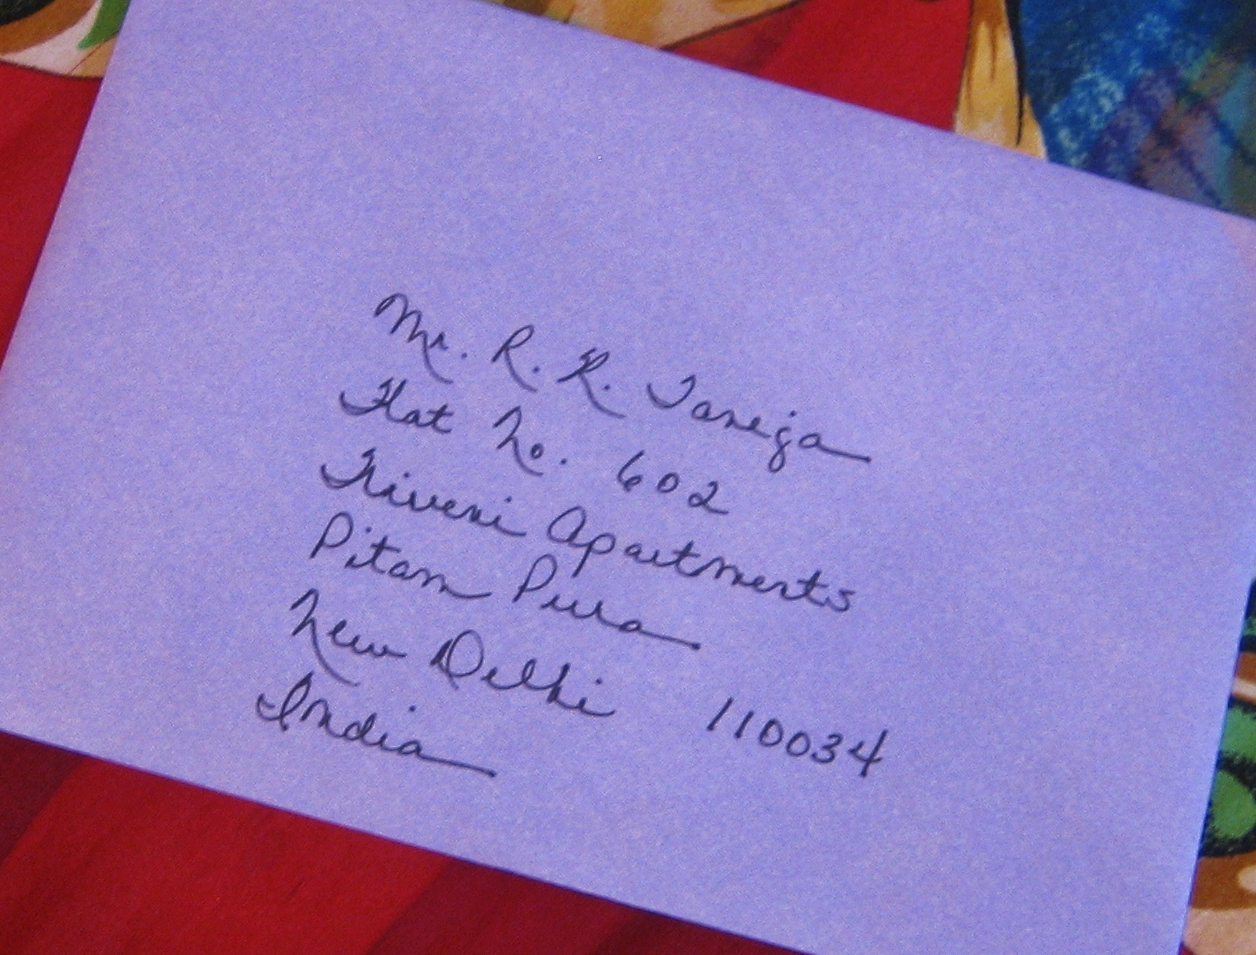 Mr. R. R. Taneja
Flat No. 602
Triveni Apartments
Pitam Pura
New Delhi 110034
India